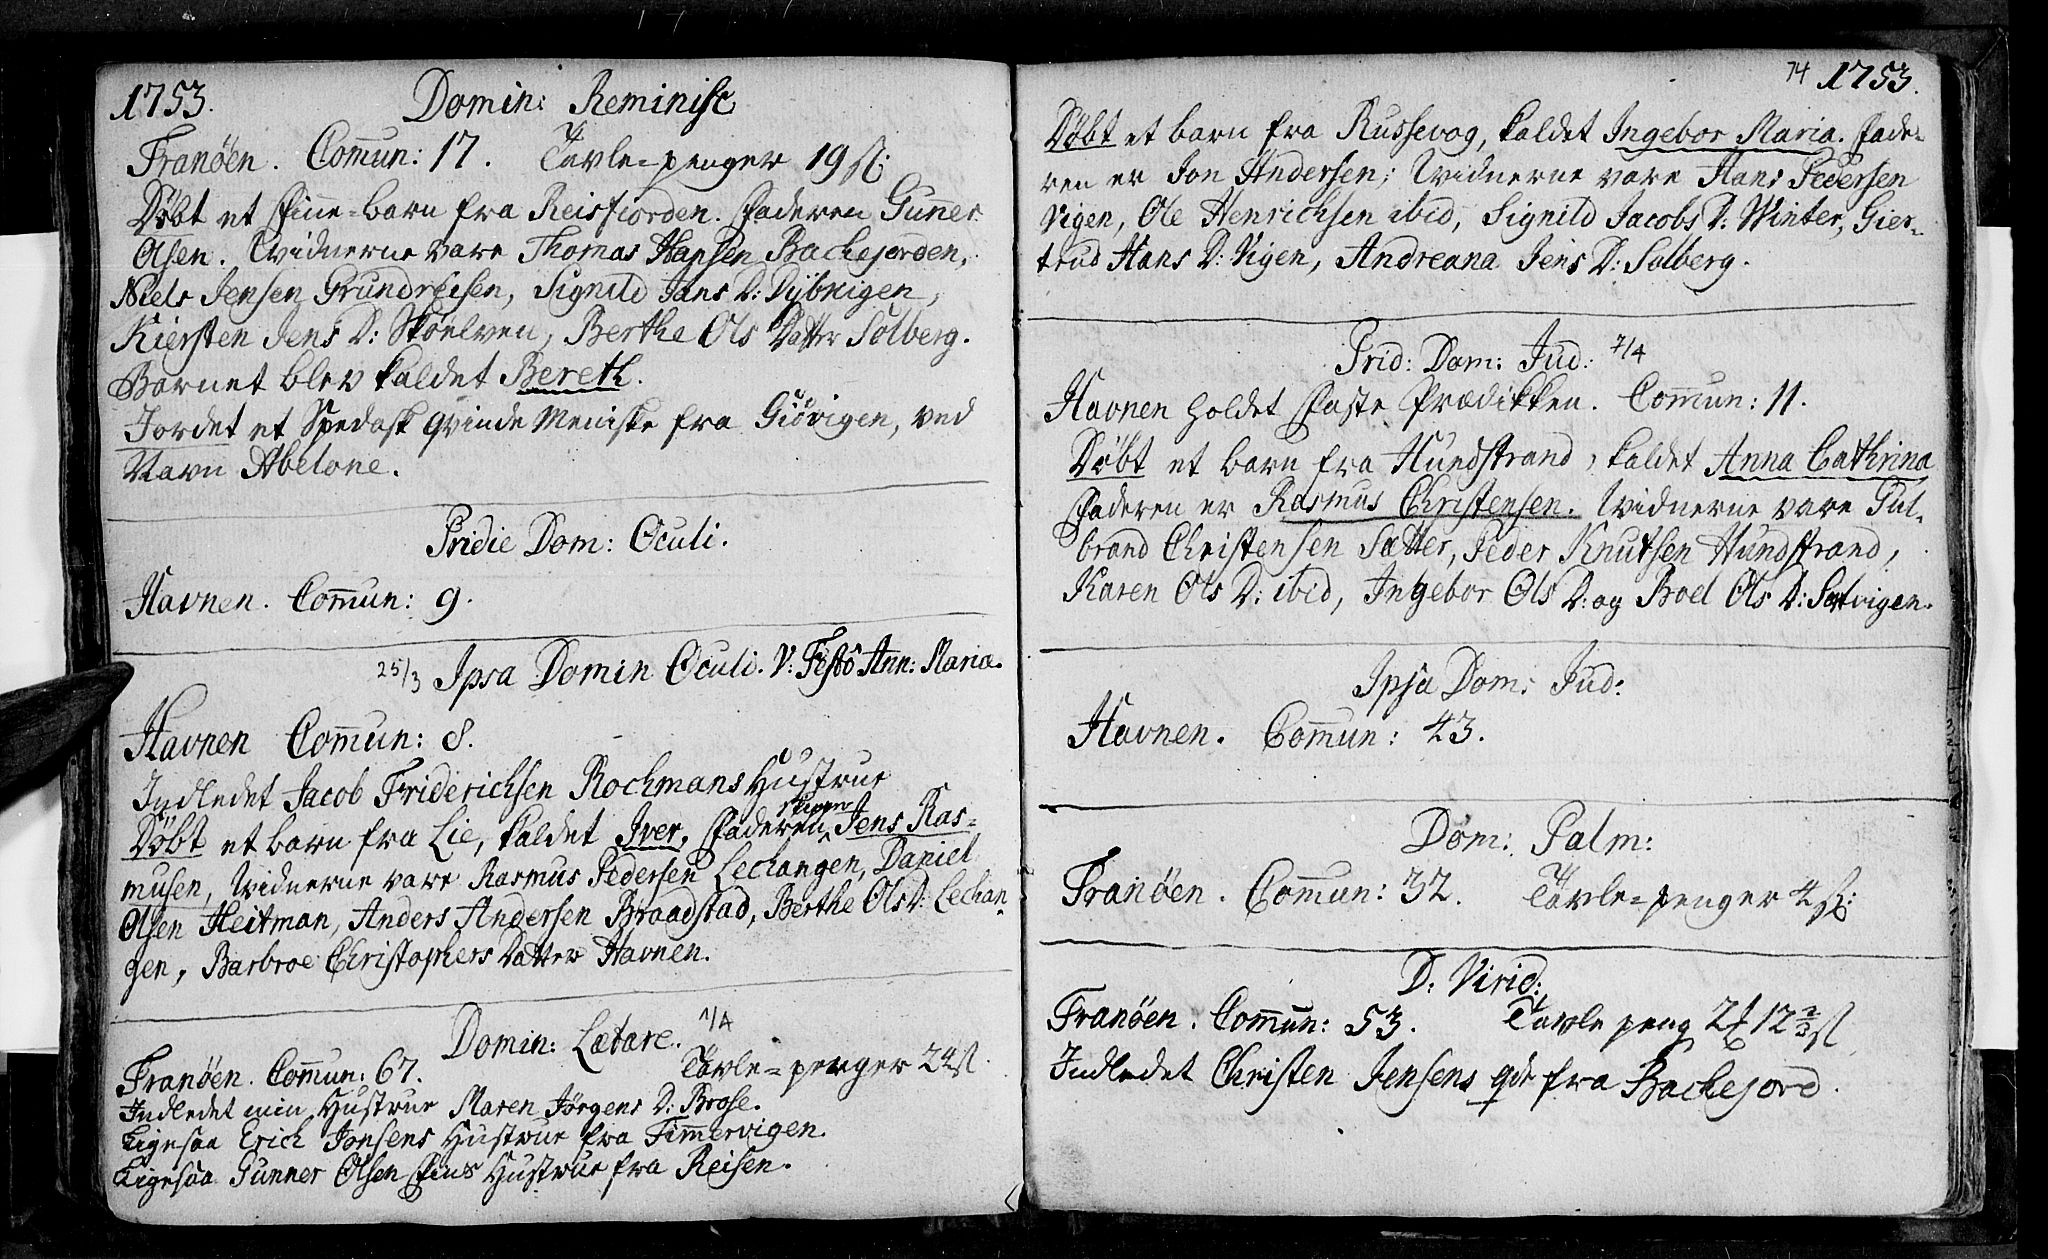 1753.
Domin: Reminisc
Tranöen. Com̄un: 17. Tavle-penger 19 sl:
Döbt et Finne-barn fra Reisfiorden. Faderen Gunner
Olsen. Widnerne vare Thomas Hansen Backejorden,
Niels Jensen Grundreisen, Signild Jans D: Dybvigen,
Kiersten Jens D: Sköelven, Berthe Ols Datter Solberg.
Barnet blev kaldet Bereth.
Jordet et Spedalsk qvinde Meniske fra Giövigen, ved
Navn Abelone.
Pridie Dom: Oculi.
Havnen. Com̄un: 9.
25/3 Ipsa Domin Oculi. V: Festo Ann: Mariæ.
Havnen Com̄un: 8.
Indledet Jacob Friderichsen Rochmans Hustrue
Döbt et barn fra Lie, kaldet Iver, Faderen Jens Ras-
musen, Widnerne vare Rasmus Pedersen Lechangen, Daniel
Olsen Heitman, Anders Andersen Braadstad, Berthe Ols D: Lechan-
gen, Barbroe Christophers Datter Havnen.
Domin: Lætare. 1/4
Tranöen. Com̄un: 67. Tavle-penger 24 sl.
Indledet min Hustrue Maren Jörgens D: Brose.
Ligesaa Erich Jonsens Hustrue fra Tim̄ervigen.
Ligesaa Gunner Olsen Fins Hustrue fra Reisen.
74 1753.
Döbt et barn fra Russevog, kaldet Ingebor Maria. Fade-
ren er Jon Andersen; Widnerne vare Hans Pedersen
Vigen, Ole Henrichsen ibid, Signild Jacobs D: Winter, Gier-
trud Hans D: Vigen, Andreana Jens D: Solberg.
Prid: Dom: Jud: 7/4
Havnen holdet Faste Prædikken. Com̄un: 11.
Döbt et barn fra Hundstrand, kaldet Anna Cathrina
Faderen er Rasmus Christensen. Widnerne vare Gul-
brand Christensen Sætter, Peder Knutsen Hundstrand,
Karen Ols D: ibid, Ingebor Ols D: og Boel Ols D: Sætvigen.
Ipsa Dom: Jud:
Havnen. Com̄un: 43.
Dom: Palm:
Tranöen. Com̄un: 32. Tavle-penger 4 sl:
D: Virid:
Tranöen. Com̄un: 53. Tavle peng 2 12 2/3 sl
Indledet Christen Jensens qde fra Backejord.